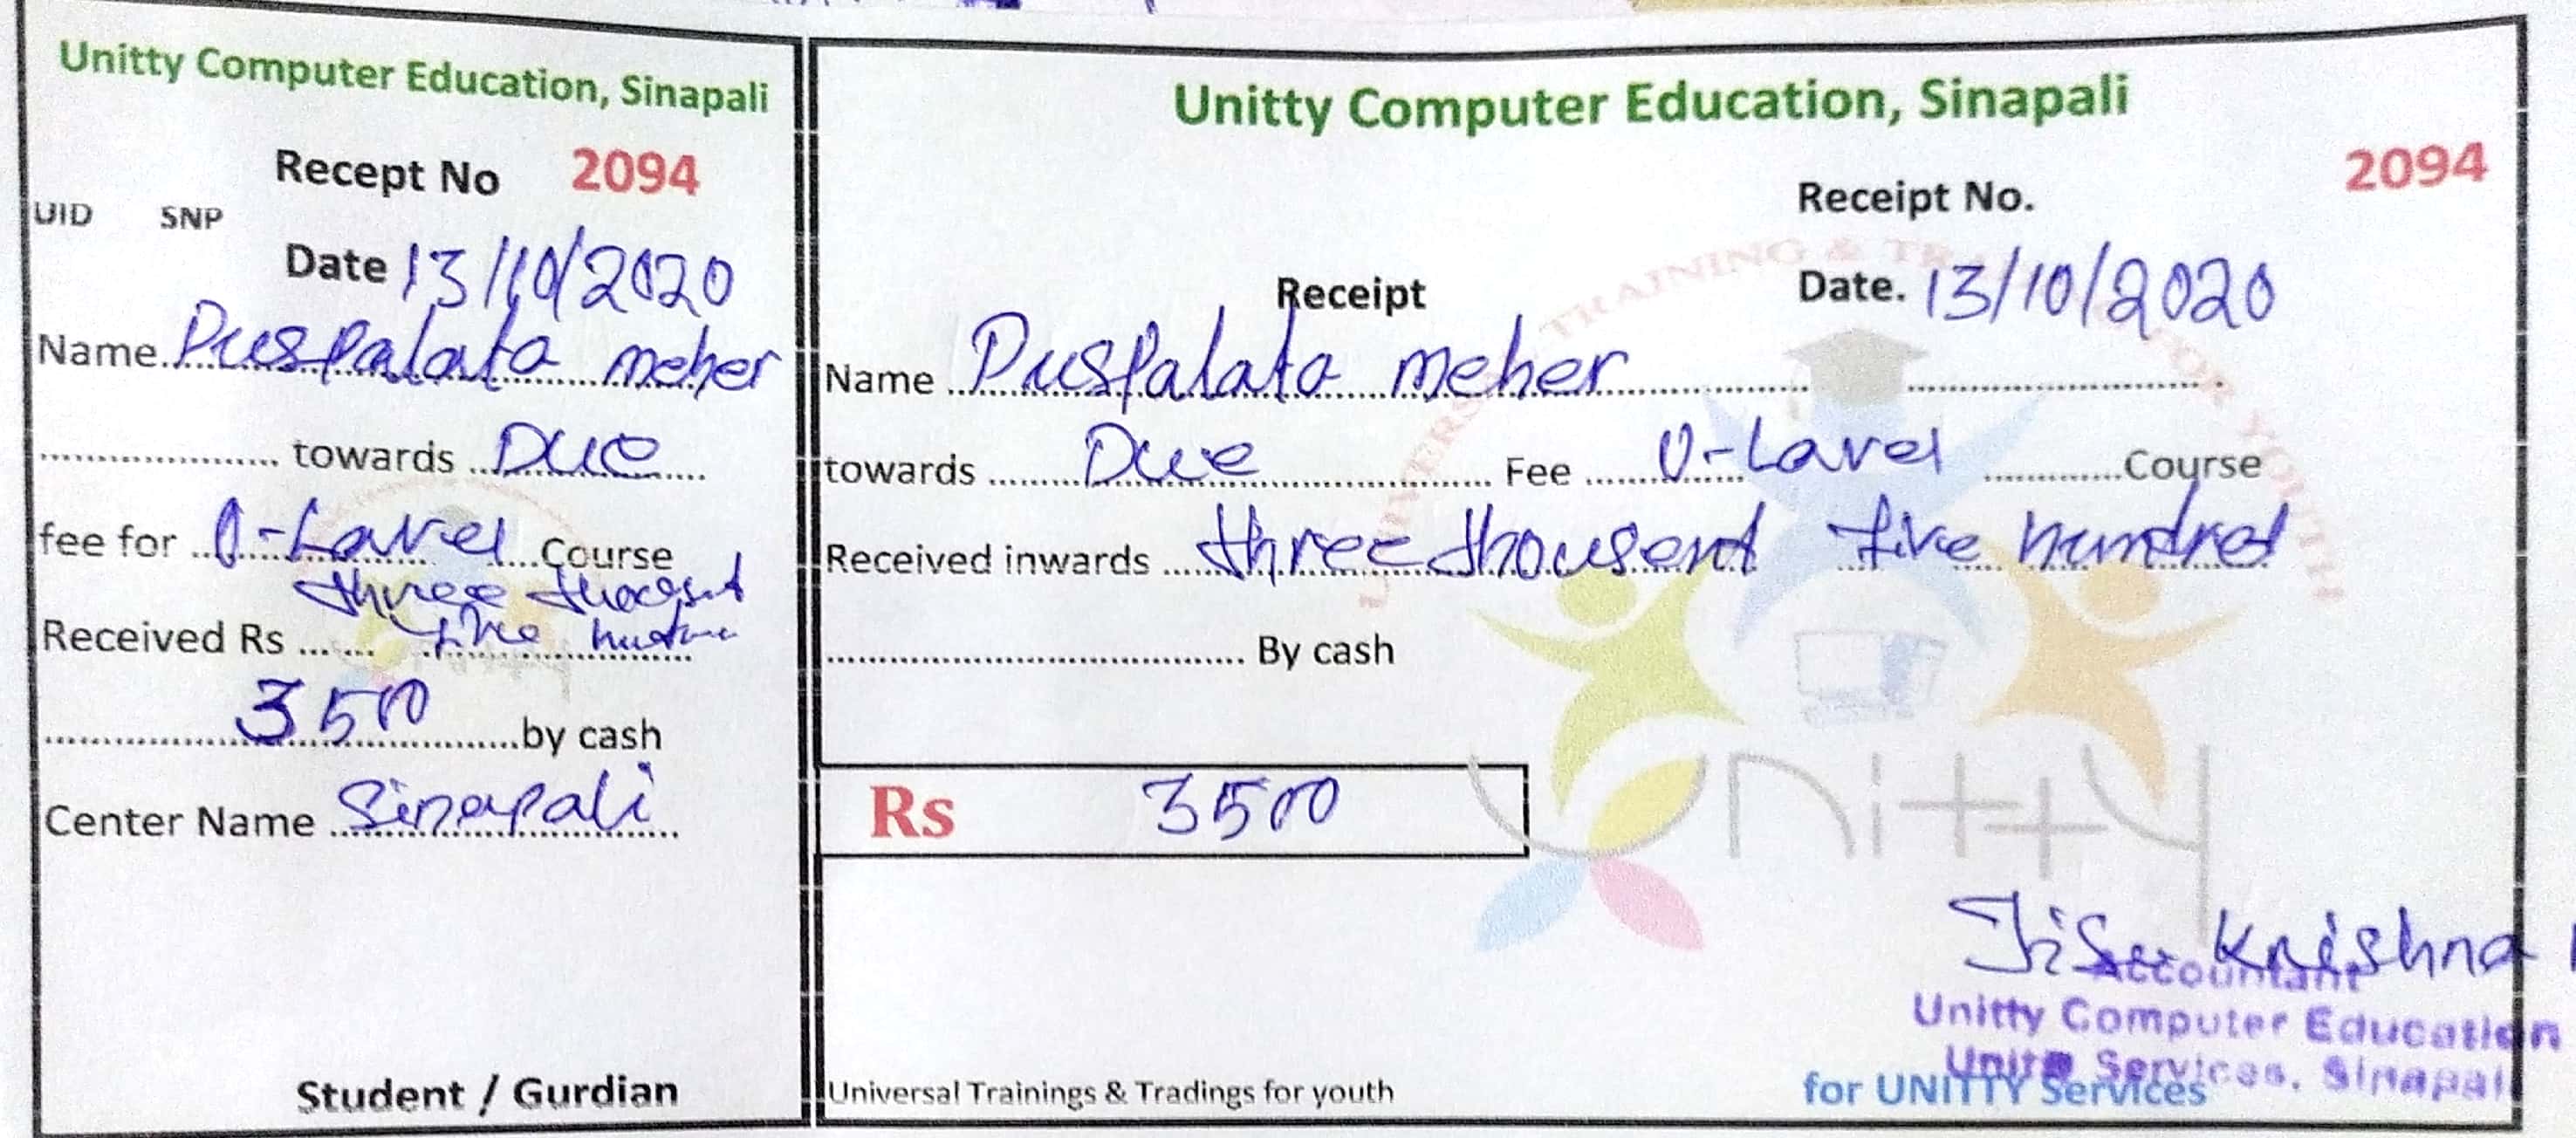 Unitty Computer Education, Sinapali
Recept No 2094
UID SNP
Date 13/10/2020
Name Puspalata meher
towards Due
fee for O-Lavel Course
three
Received Rs five
3500 by cash
Center Name Sinapali
Student / Gurdian
Unitty Computer Education, Sinapali
2094
Receipt No.
Receipt Date. 13/10/2020
Name Puspalata meher
towards Due Fee O-Lavel Course
Received inwards three thousent five hundred
By cash
Rs 3500
UNIVERSAL TRAINING & FOR YOUTH
Unitty
Jisu Krishna
Accountant
Unitty Computer Education
Unitty Services, Sinapali
Universal Trainings & Tradings for youth
for UNITTY Services